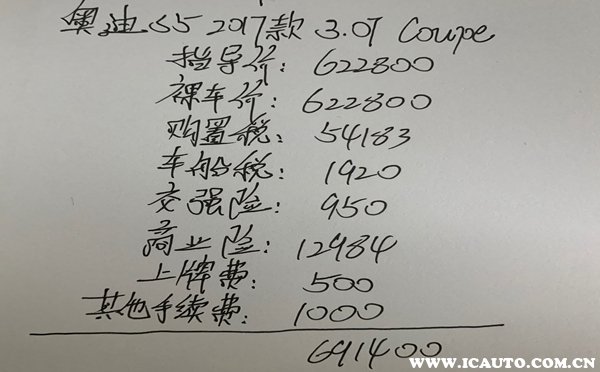 奥迪S5 2017款 3.0T Coupe
指导价: 622800
裸车价: 622800
购置税: 54183
车船税: 1920
交强险: 950
商业险: 12984
上牌费: 500
其他手续费: 1000
691400
WWW.ICAUTO.COM.CN